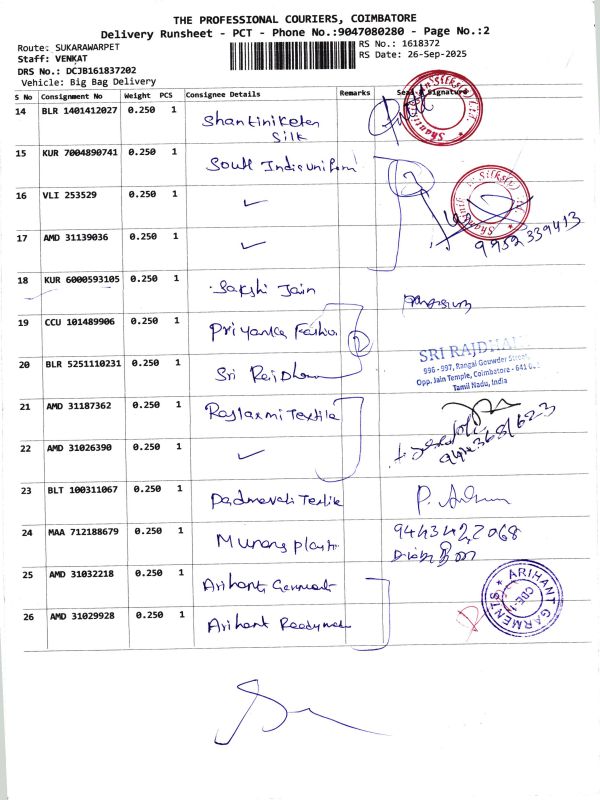 THE PROFESSIONAL COURIERS, COIMBATORE
Delivery Runsheet - PCT - Phone No.:9047080280 - Page No.:2
Route: SUKARAWARPET
RS No.: 1618372
Staff: VENKAT
RS Date: 26-Sep-2025
DRS No.: DCJB161837202
Vehicle: Big Bag Delivery
S No Consignment No Weight PCS Consignee Details Remarks Seal & Signature
14 BLR 1401412027 0.250 1 Shantiniketen
Silk
15 KUR 7004890741 0.250 1 South Indiauniform
16 VLI 253529 0.250 1 ✓
17 AMD 31139036 0.250 1 ✓
9952339413
18 KUR 6000593105 0.250 1 Sakshi Jain
19 CCU 101489906 0.250 1 Priyanka Fashion
2
20 BLR 5251110231 0.250 1 Sri Rajdhani
SRI RAJDHANI
996 - 997, Rangai Gouwder Street,
Opp. Jain Temple, Coimbatore - 641 0
Tamil Nadu, India
21 AMD 31187362 0.250 1 Rajlaxmi Textile
22 AMD 31026390 0.250 1 ✓
23 BLT 100311067 0.250 1 Padmavati Textile
P.
24 MAA 712188679 0.250 1 Munang plasti
9443422068
25 AMD 31032218 0.250 1 Arihant Garments
ARIHANT GARMENTS
CBE-1
26 AMD 31029928 0.250 1 Arihant Readymade